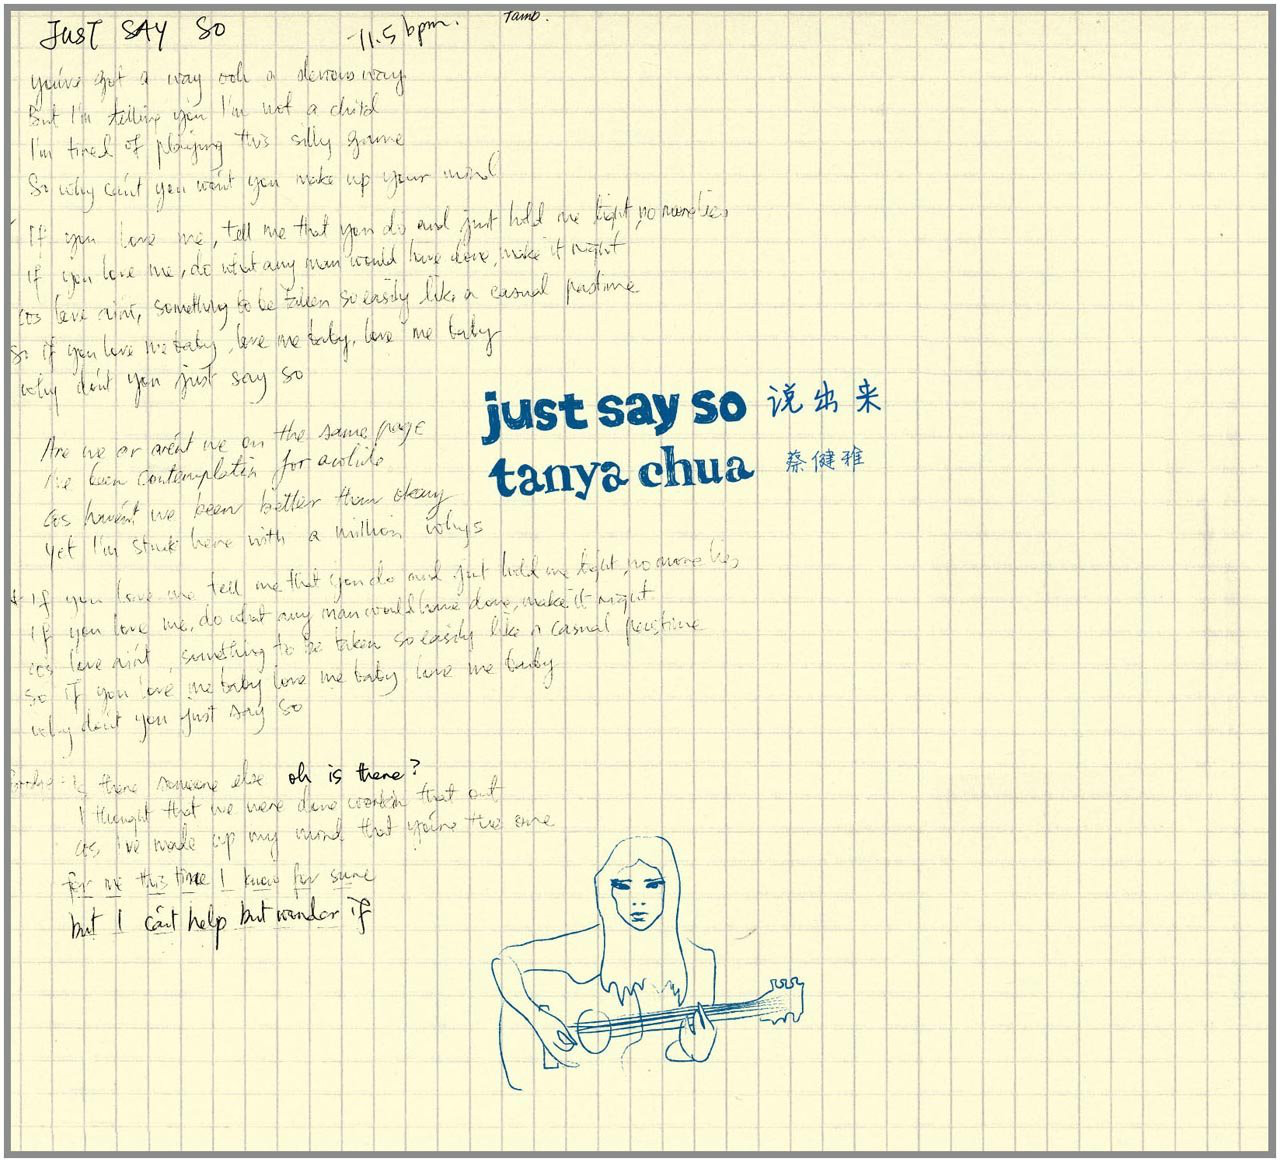 JUST SAY SO
11.5 bpm.
Tamb.
you've got a way ooh a devious way
But I'm telling you I'm not a child
I'm tired of playing this silly game
So why can't you won't you make up your mind
If you love me, tell me that you do and just hold me tight, no more lies
if you love me, do what any man would have done, make it right
cos love ain't, something to be taken so easily like a casual pastime
So if you love me baby, love me baby, love me baby
why don't you just say so
just say so 说出来
tanya chua 蔡健雅
Are we or aren't we on the same page
I've been contemplatin for awhile
cos haven't we been better than okay
Yet I'm stuck here with a million whys
* If you love me tell me that you do and just hold me tight, no more lies
If you love me, do what any man would have done, make it right
cos love ain't, something to be taken so easily like a casual pastime
So if you love me baby love me baby, love me baby
why don't you just say so
is there someone else oh is there?
I thought that we were done workin that out
cos I've made up my mind that you're the one
for me this time I know for sure
but I can't help but wonder if